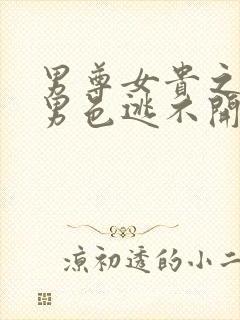 男尊女貴之
男色逃不開
涼初透的小二